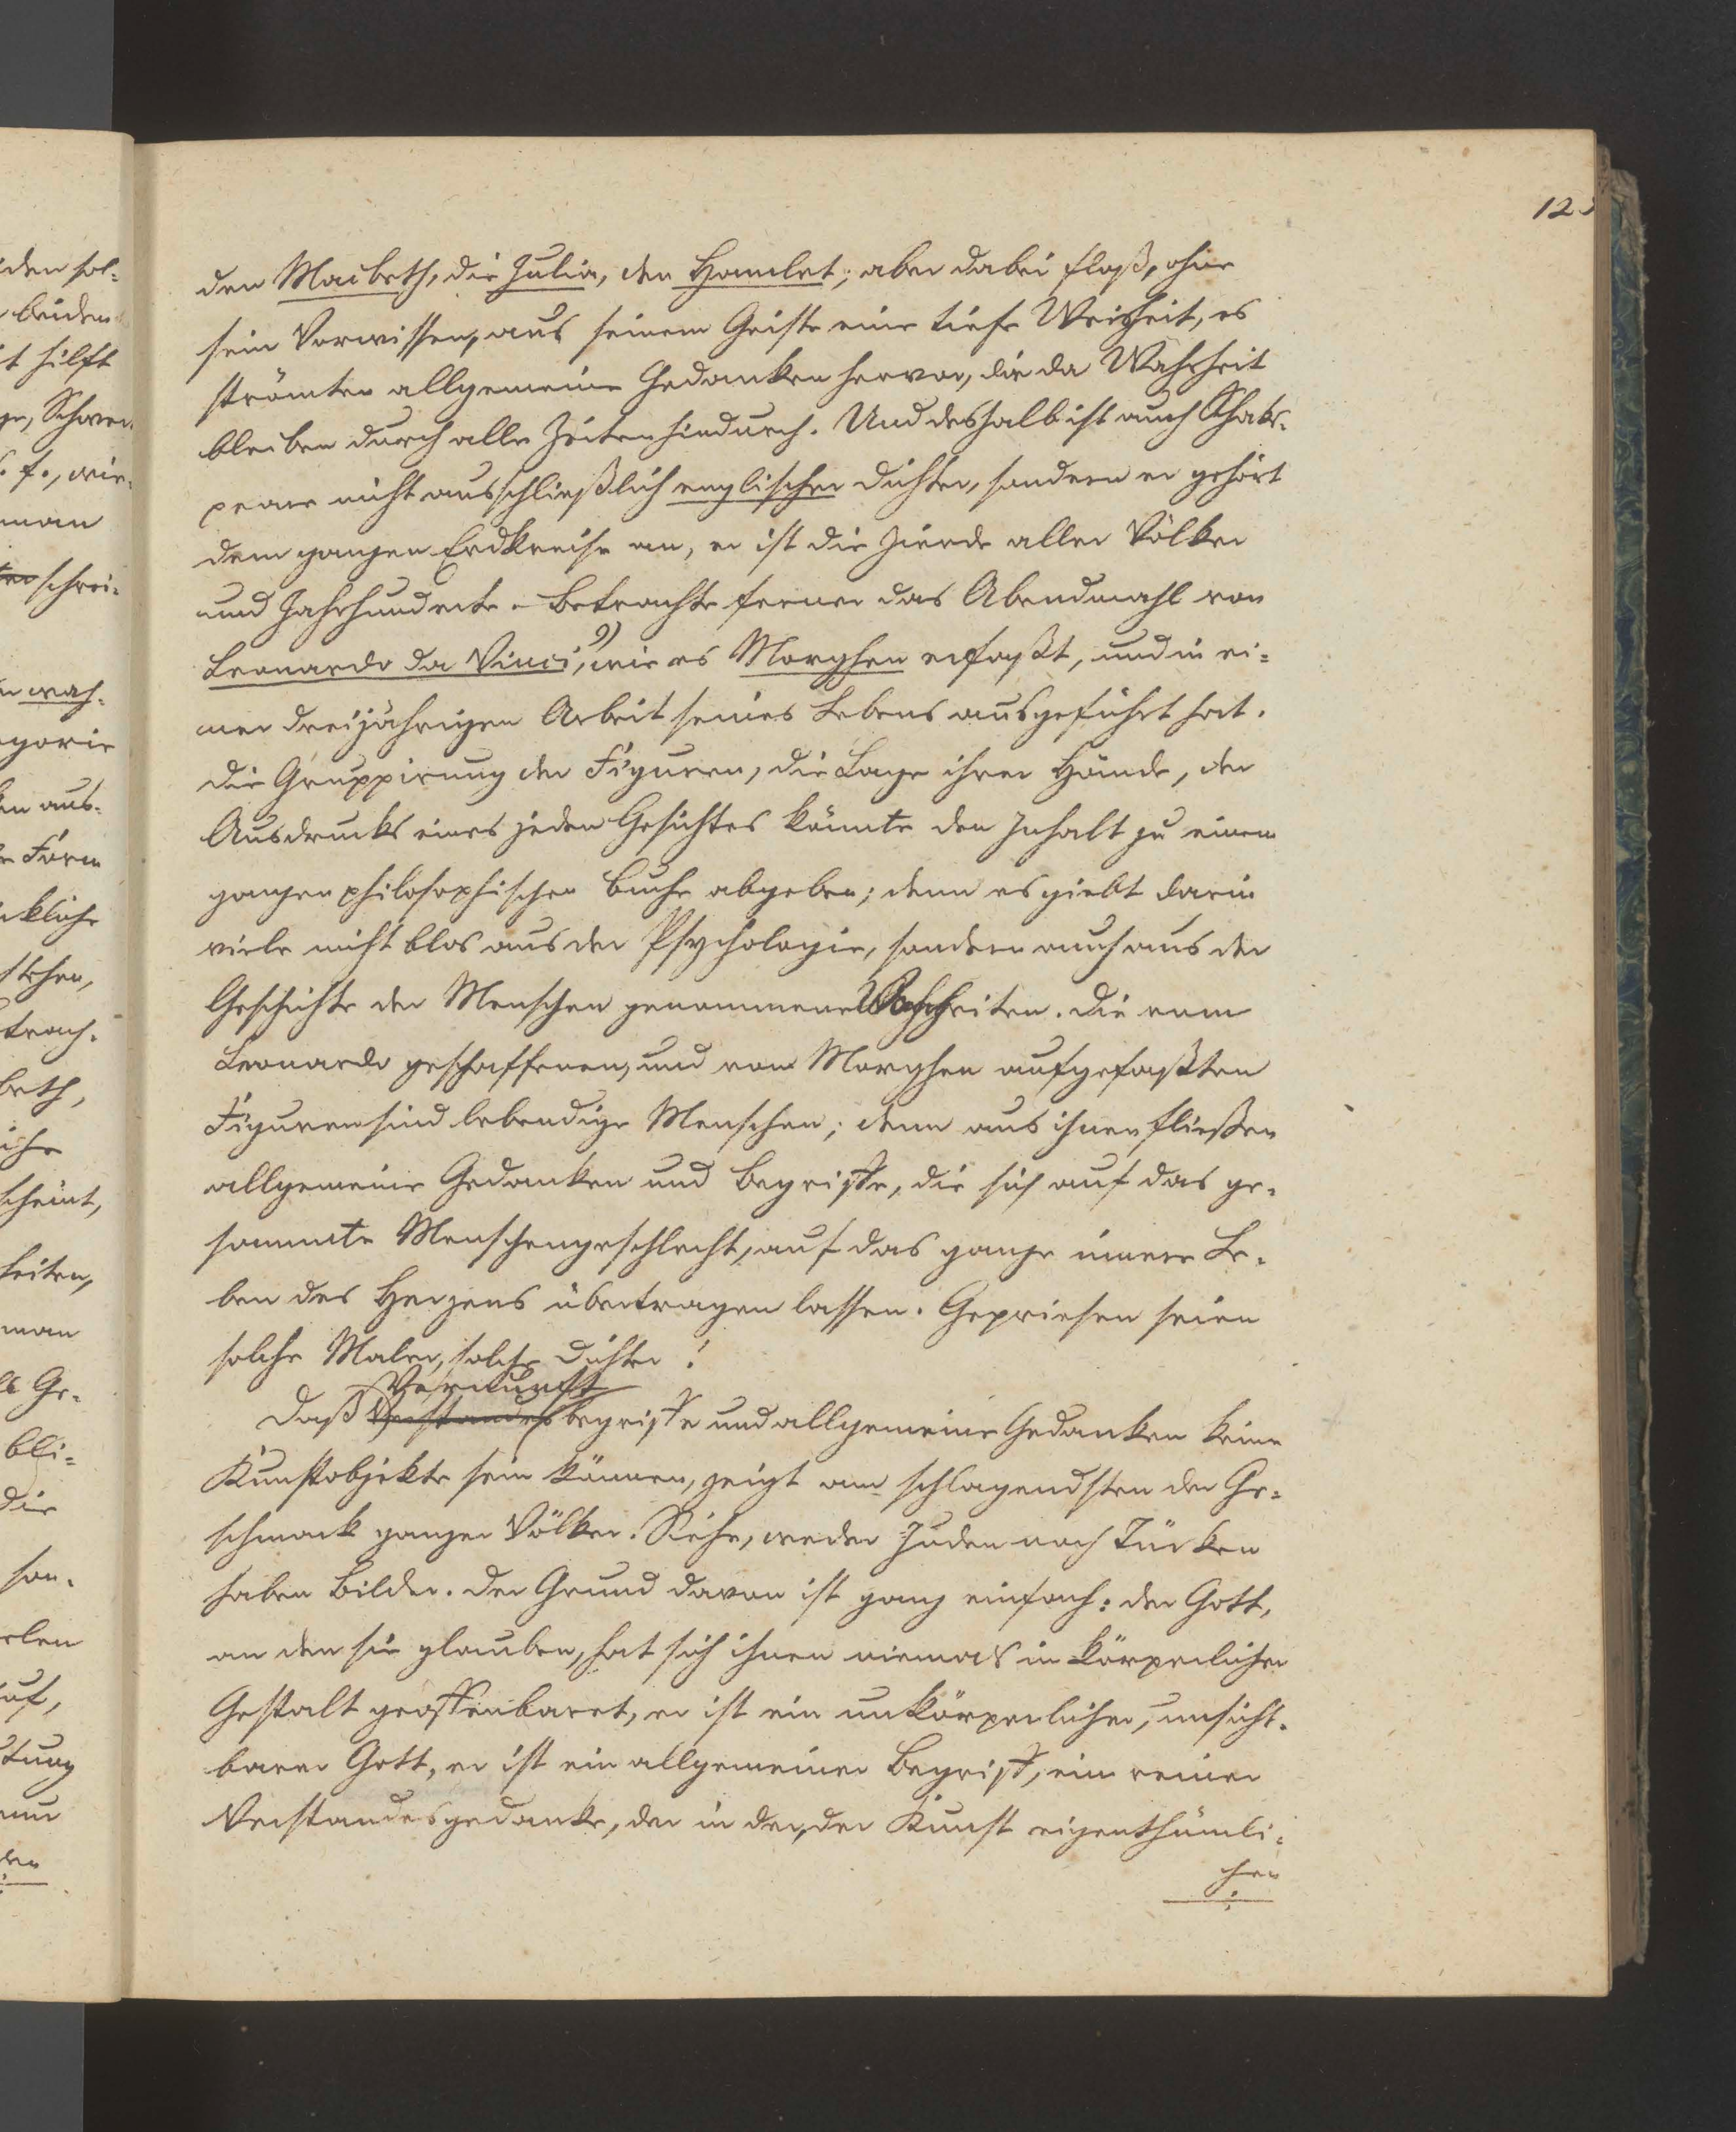 12
den Macbeth, die Julia, den Hamlet; aber dabei floß, ohne
sein Vorwissen, aus seinem Geiste eine tiefe Weisheit, es
strömten allgemeine Gedanken hervor, die da Wahrheit
bleiben durch alle Zeiten hindurch. Und deshalb ist auch Shaks-
peare nicht ausschließlich englischer Dichter, sondern er gehört
dem ganzen Erdkreise an, er ist die Zierde aller Völker
und Jahrhunderte. Betrachte ferner das Abendmahl von
Leonardo da Vinci,⁹⁾ wie es Morghen erfaßt, und in ei-
ner dreijährigen Arbeit seines Lebens ausgeführt hat.
Die Gruppirung der Figuren, die Lage ihrer Hände, der
Ausdrucks eines jeden Gesichtes könnte den Inhalt zu einem
ganzen philosophischen Buche abgeben; denn es giebt darin
viele nicht blos aus der Psychologie, sondern auch aus der
Geschichte der Menschen genommene Wahrheiten. Die vom
Leonardo geschaffenen, und vom Morghen aufgefaßten
Figuren sind lebendige Menschen; denn aus ihnen fließen
allgemeine Gedanken und Begriffe, die sich auf das ge-
sammte Menschengeschlecht, auf das ganze innere Le-
ben des Herzens übertragen lassen. Gepriesen seien
solche Maler, solche Dichter!
Vernunft
Daß Verstandesbegriffe und allgemeine Gedanken keine
Kunstobjekte sein können, zeigt am schlagendsten der Ge-
schmack ganzer Völker. Siehe, weder Juden noch Türken
haben Bilder. Der Grund davon ist ganz einfach: der Gott,
an den sie glauben, hat sich ihnen niemals in körperlicher
Gestalt geoffenbaret, er ist ein unkörperlicher, unsicht-
barer Gott, er ist ein allgemeiner Begriff, ein reiner
Verstandesgedanke, der in der, der Kunst eigenthümli-
chen